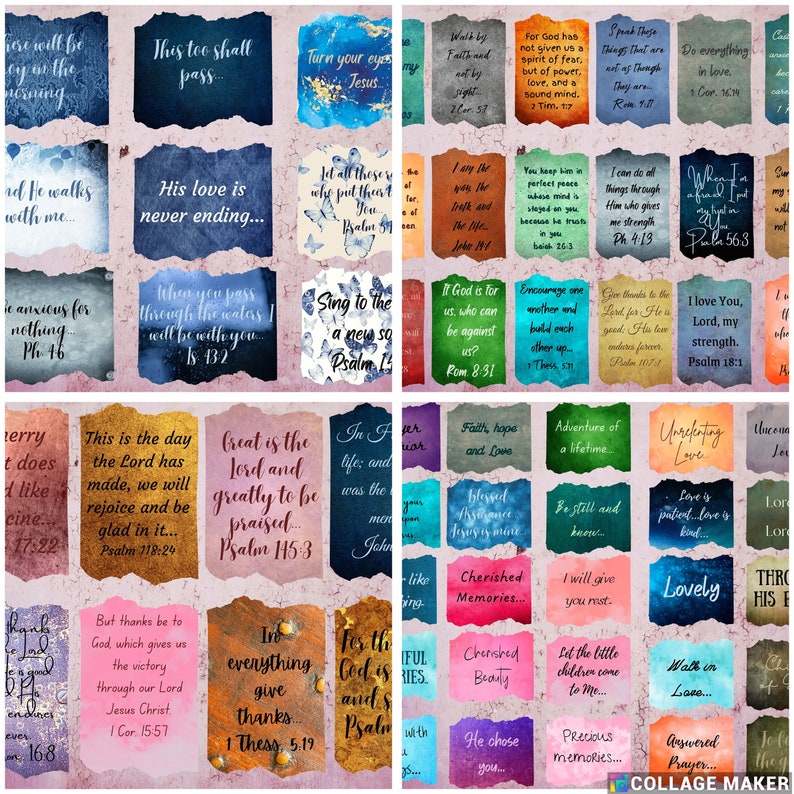 There will be
joy in the
morning...
This too shall
pass...
Turn your eyes
Jesus...
And He walks
with me...
His love is
never ending...
Let all those
who put their
You...
Psalm 5:
Be anxious for
nothing...
Ph. 4:6
When you pass
through the waters, I
will be with you...
Is. 43:2
Sing to the
a new so
Psalm
Walk by
Faith and
not by
sight...
2 Cor. 5:7
For God has
not given us a
spirit of fear,
but of power,
love, and a
sound mind.
2 Tim. 1:7
Speak those
things that are
not as though
they are...
Rom. 4:17
Do everything
in love.
1 Cor. 16:14
I am the
way, the
truth and
the life...
John 14:6
You keep him in
perfect peace
whose mind is
stayed on you,
because he trusts
in you.
Isiah 26:3
I can do all
things through
Him who gives
me strength.
Ph. 4:13
When I'm
afraid, I put
my trust in
You.
Psalm 56:3
If God is for
us, who can
be against
us?
Rom. 8:31
Encourage one
another and
build each
other up...
1 Thess. 5:11
Give thanks to the
Lord, for He is
good; His love
endures forever.
Psalm 107:1
I love You,
Lord, my
strength.
Psalm 18:1
merry
t does
d like
cine...
17:22
This is the day
the Lord has
made, we will
rejoice and be
glad in it...
Psalm 118:24
Great is the
Lord and
greatly to be
praised...
Psalm 145:3
In H
life; and
was the
men
John
thank
he Lord
e is good
d His
endures
ever.
16:8
But thanks be to
God, which gives us
the victory
through our Lord
Jesus Christ.
1 Cor. 15:57
In
everything
give
thanks...
1 Thess. 5:19
For th
God is
and s
Psalm
Faith, hope
and Love
Adventure of
a lifetime...
Unrelenting
Love...
Uncon
Lo
Blessed
Assurance...
Jesus is mine...
Be still and
know...
Love is
patient...love is
kind...
Lor
Cherished
Memories...
I will give
you rest...
Lovely
THRO
HIS
Cherished
Beauty
Let the little
children come
to Me...
Walk in
Love...
He chose
you...
Precious
memories...
Answered
Prayer...
COLLAGE MAKER